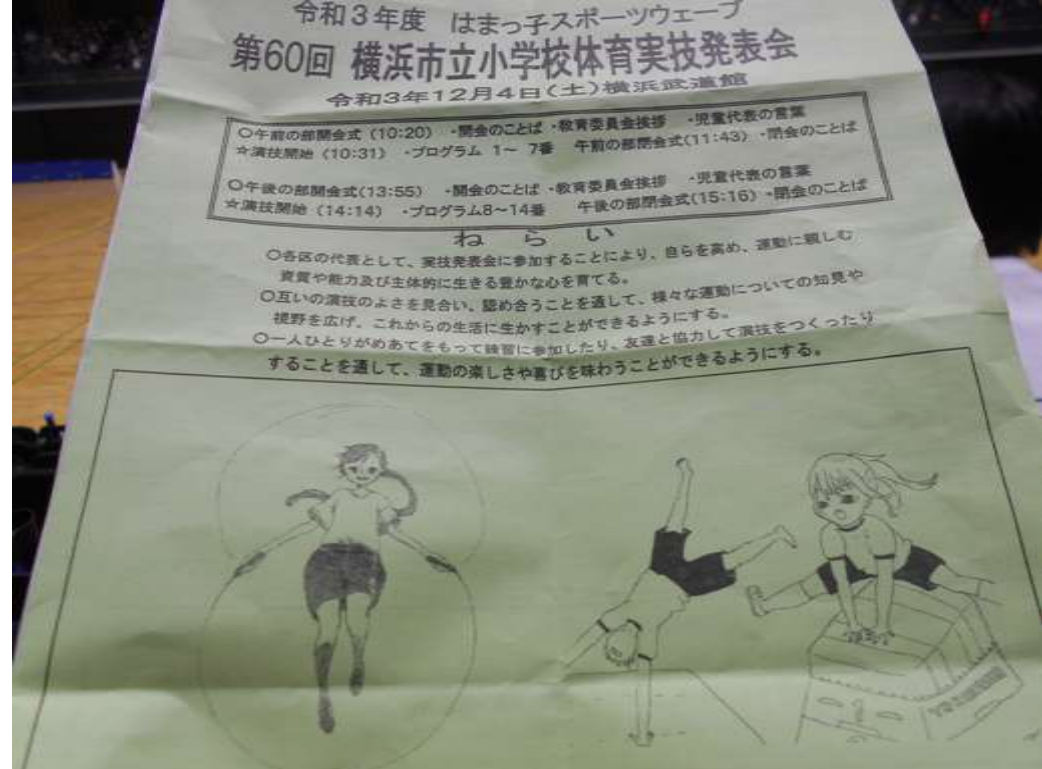 令和3年度 はまっ子スポーツウェーブ
第60回 横浜市立小学校体育実技発表会
令和3年12月4日(土)横浜武道館
○午前の部開会式(10:20) ・開会のことば ・教育委員会挨拶 ・児童代表の言葉
☆演技開始(10:31) ・プログラム 1～ 7番 午前の部閉会式(11:43) ・閉会のことば
○午後の部開会式(13:55) ・開会のことば ・教育委員会挨拶 ・児童代表の言葉
☆演技開始(14:14) ・プログラム8～14番 午後の部閉会式(15:16) ・閉会のことば
ねらい
○各区の代表として、実技発表会に参加することにより、自らを高め、運動に親しむ
資質や能力及び主体的に生きる豊かな心を育てる。
○互いの演技のよさを見合い、認め合うことを通して、様々な運動についての知見や
視野を広げ、これからの生活に生かすことができるようにする。
○一人ひとりがめあてをもって練習に参加したり、友達と協力して演技をつくったり
することを通して、運動の楽しさや喜びを味わうことができるようにする。